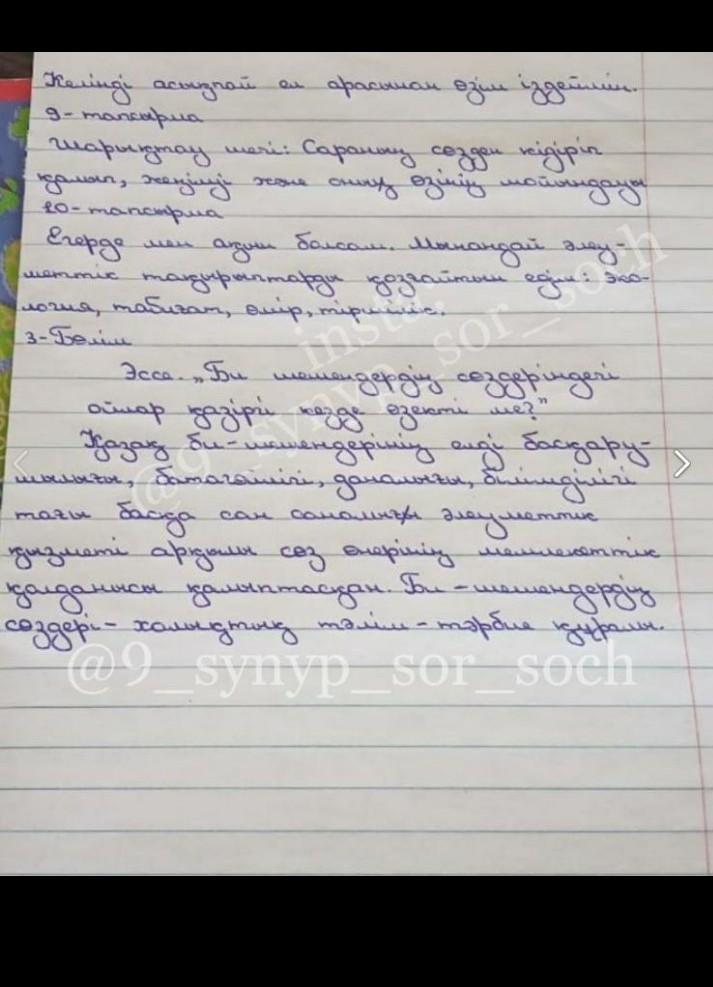 Келінді асықпай ел арасынан өзім іздеймін.
9-тапсырма
Шарықтау шегі: Сараның сөзден кідіріп
қалып, жеңілуі және оның өзінің мойындауы
10-тапсырма
Егерде мен ақын болсам. Мынандай әлеу-
меттік тақырыптарды қозғайтын едім: эко-
логия, табиғат, өмір, тіршілік.
3-Бөлім
Эссе. „Би шешендердің сөздеріндегі
ойлар қазіргі кезде өзекті ме?"
Қазақ би-шешендерінің елді басқару-
шылығы, батагөйлігі, даналығы, білімділігі
тағы басқа сан саналығы әлеуметтік
қызметі арқылы сөз өнерінің мемлекеттік
қолданысы қалыптасқан. Би-шешендердің
сөздері- халықтық тәлім-тәрбие құралы.
insta:
@9_synyp_sor_soch
@9_synyp_sor_soch